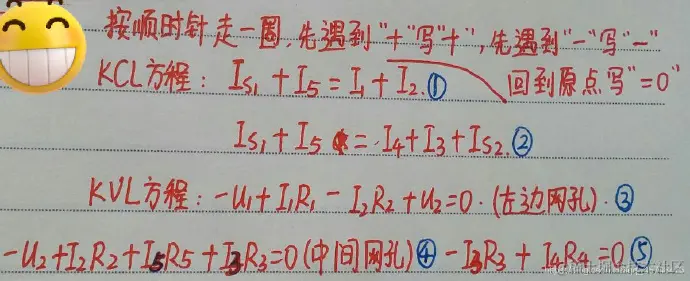 按顺时针走一圈,先遇到"+"写"+",先遇到"-"写"-"
KCL方程: Is₁ + I5 = I₁ + I₂.① 回到原点写"=0"
Is₁ + I5 = I4 + I3 + Is2.②
KVL方程: -U₁ + I₁R₁ - I₂R₂ + U₂ = 0.(左边网孔).③
-U₂ + I₂R₂ + I5R5 + I3R3 = 0(中间网孔)④ -I3R3 + I4R4 = 0⑤